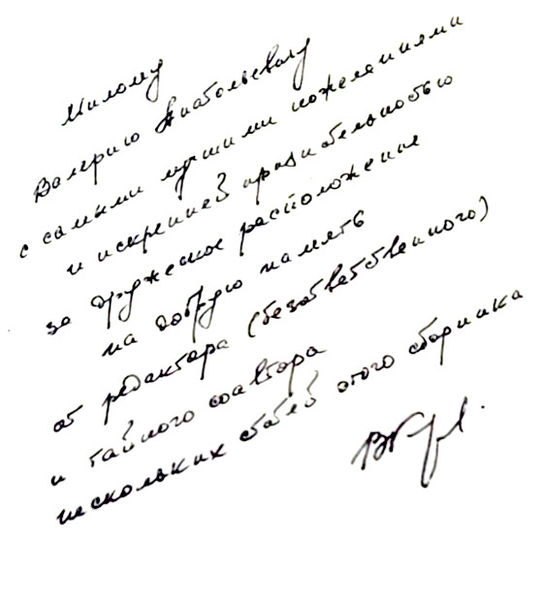 Милому
Валерию Анатольевичу
с самыми лучшими пожеланиями
и искренней признательностью
за дружеское расположение
на добрую память
от редактора (безответственного)
и тайного соавтора
нескольких статей этого сборника